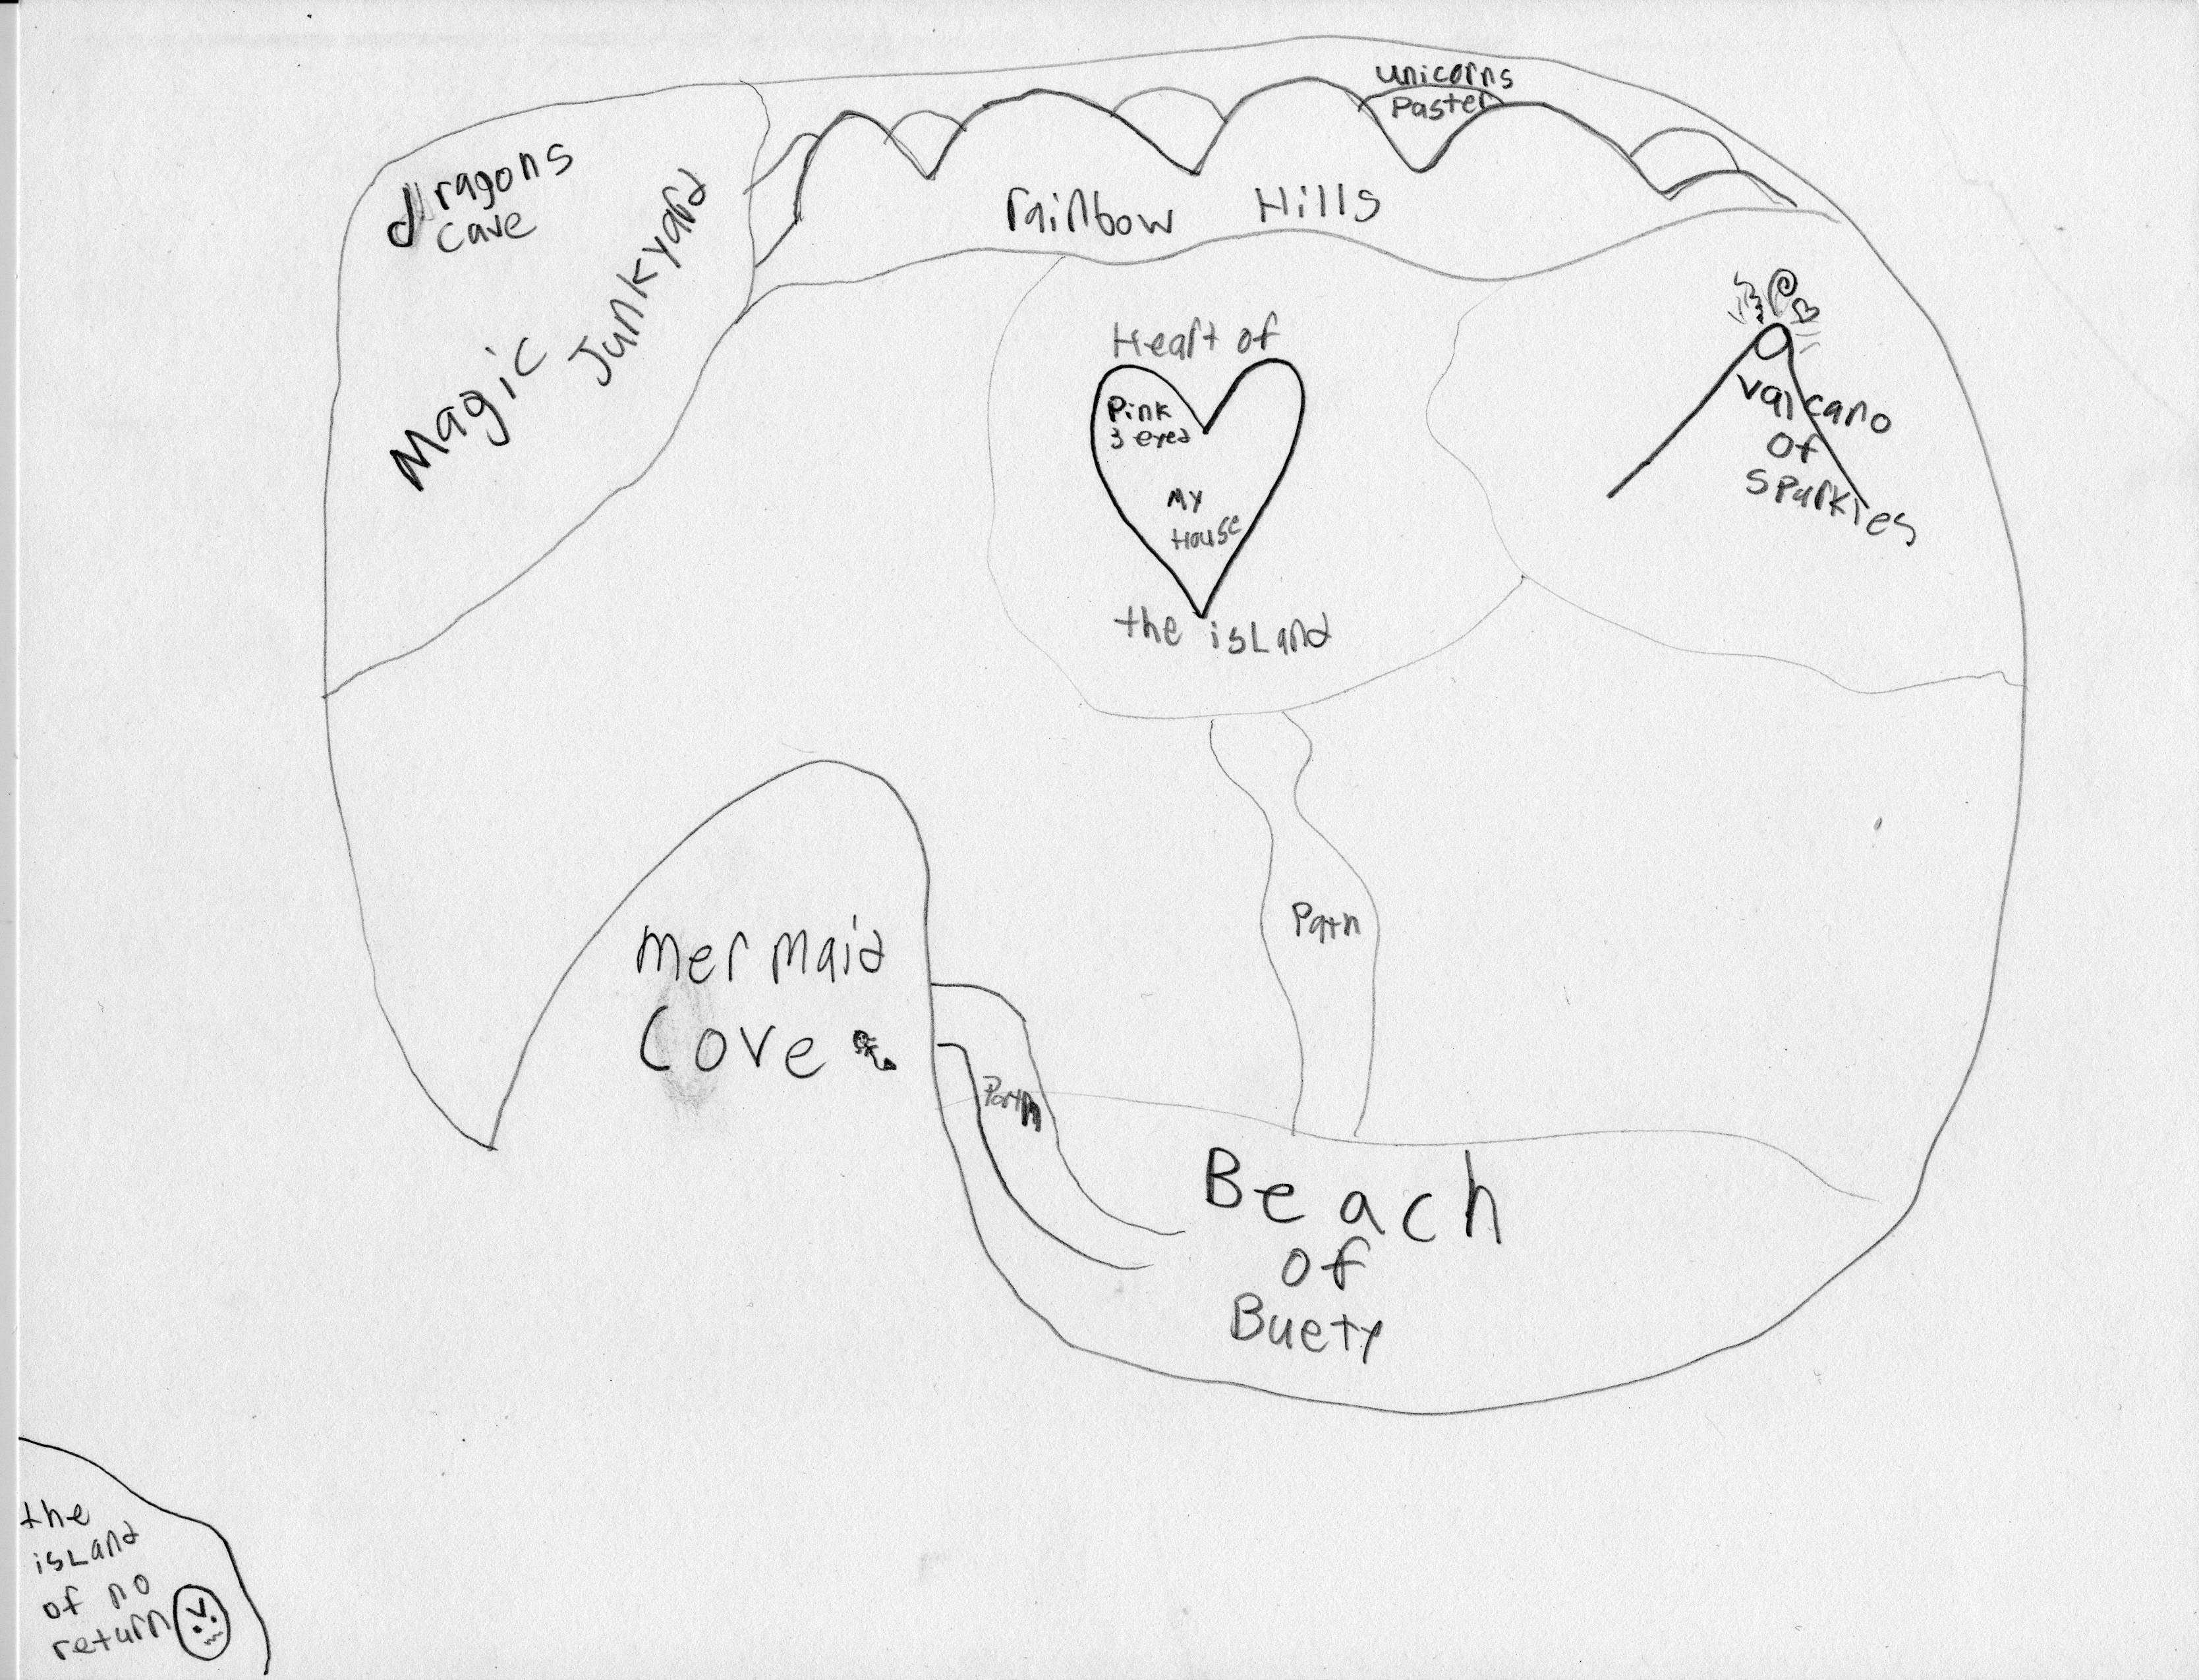 unicorns
Paster
dragons
cave
Magic Junkyard
rainbow Hills
Heart of
Pink
3 eyed
My
House
the island
Valcano
of
Sparkles
Path
mermaid
Cove
Path
Beach
of
Buety
the
island
of no
return